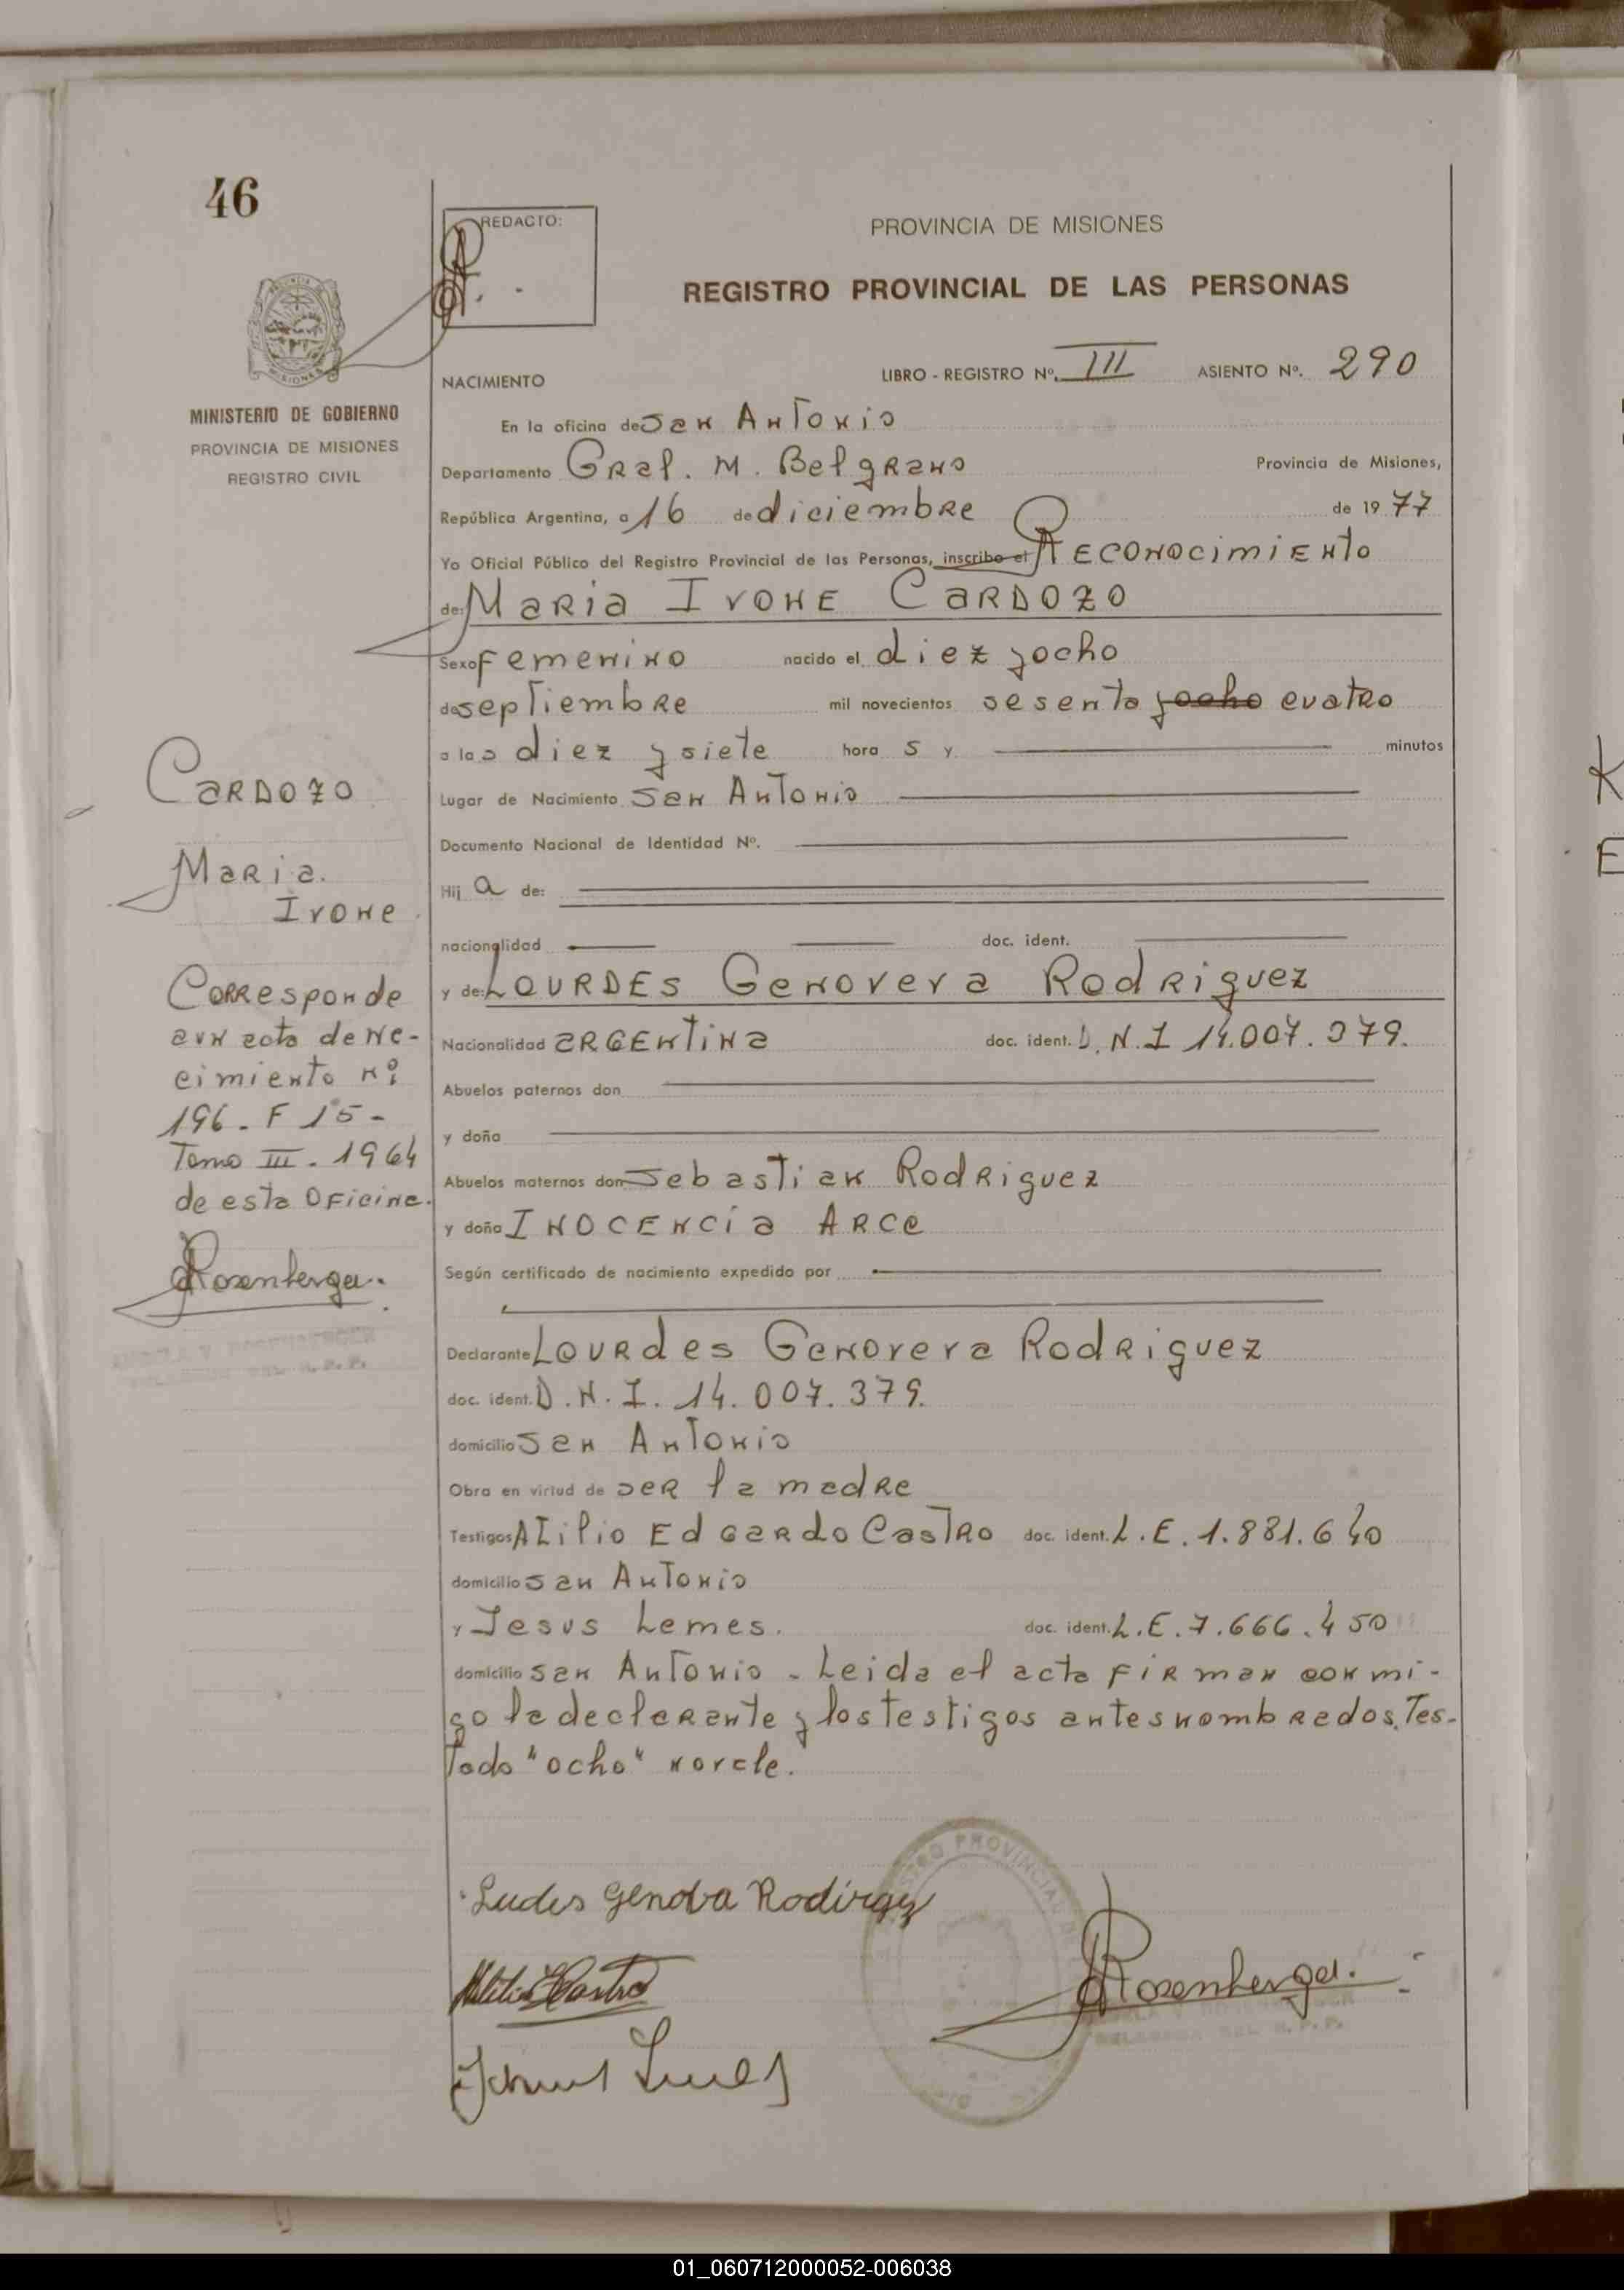 46
REDACTO:
PROVINCIA DE MISIONES
REGISTRO PROVINCIAL DE LAS PERSONAS
MISIONES
MINISTERIO DE GOBIERNO
PROVINCIA DE MISIONES
REGISTRO CIVIL
NACIMIENTO LIBRO - REGISTRO Nº. III ASIENTO Nº. 290
En la oficina de San Antonio
Departamento Gral. M. Belgrano Provincia de Misiones,
República Argentina, a 16 de diciembre de 1977
Yo Oficial Público del Registro Provincial de las Personas, inscribo el Reconocimiento
de: Maria Ivone Cardozo
Sexo femenino nacido el diez y ocho
de septiembre mil novecientos sesenta y ocho cuatro
a las diez y siete hora s y minutos
Lugar de Nacimiento San Antonio
Documento Nacional de Identidad Nº.
Hij a de:
nacionalidad doc. ident.
y de: Lourdes Genoveva Rodriguez
Nacionalidad argentina doc. ident. D.N.I 14.007.379.
Abuelos paternos don
y doña
Abuelos maternos don Sebastian Rodriguez
y doña Inocencia Arce
Según certificado de nacimiento expedido por
Declarante Lourdes Genoveva Rodriguez
doc. ident. D.N.I. 14.007.379.
domicilio San Antonio
Obra en virtud de ser la madre
Testigos Atilio Edgardo Castro doc. ident. L.E. 1.881.640
domicilio San Antonio
y Jesus Lemes. doc. ident. L.E. 7.666.450
domicilio San Antonio - Leida el acta firman conmi-
go la declarante y los testigos antes nombrados. Tes-
tado "ocho" no vale.
Cardozo
Maria.
Ivone
Corresponde
a un acta de na-
cimiento nº
196 - F 15 -
Tomo III - 1964
de esta Oficina.
Rosenberger.
Ludes Genova Rodirgez
Atilio E Castro
Rosenberger.
DELEGADA DEL R.P.P.
01_060712000052-006038